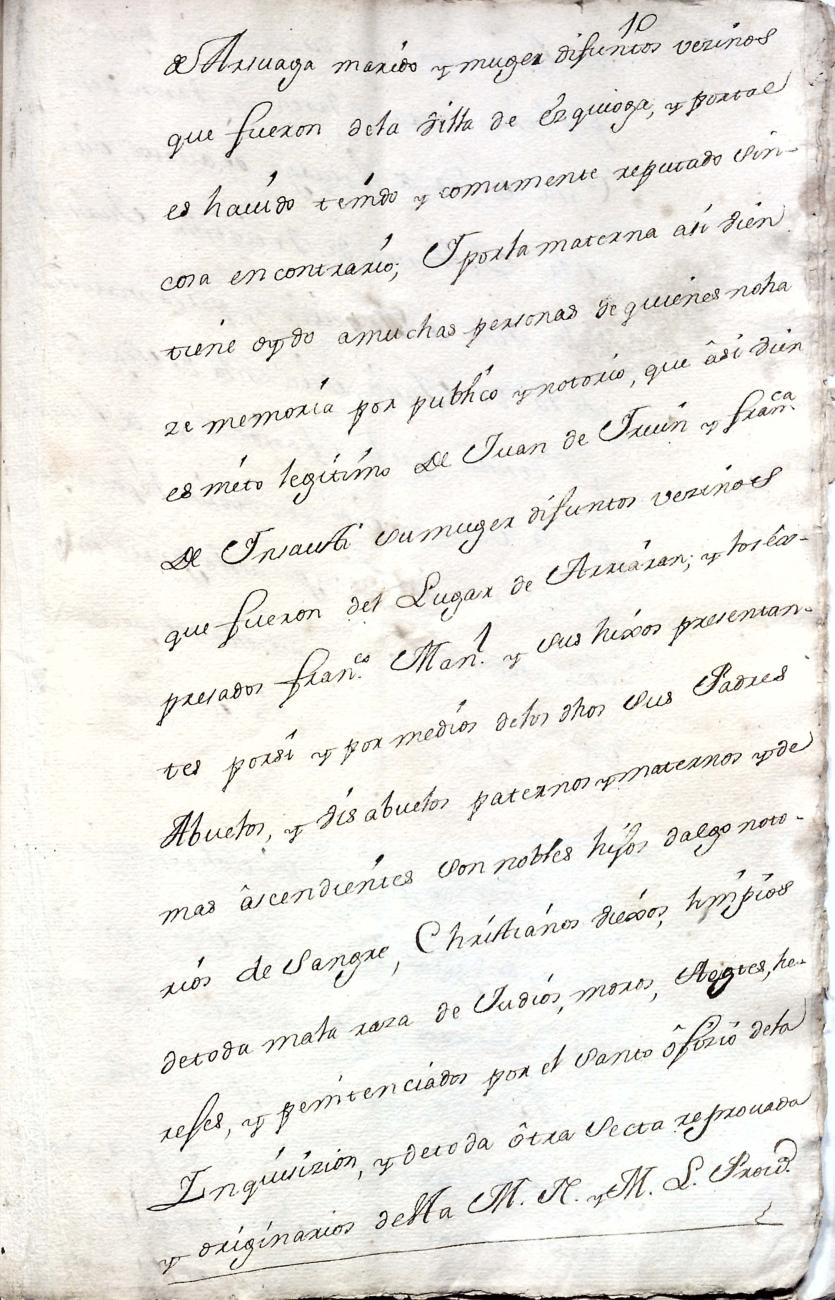 10
de Arsuaga marido y muger difuntos vezinos
que fueron dela Villa de Ezquioga, y portal
es hauido tenido y comumente reputado sin-
cosa encontrario; Y porla materna asi vien
tiene oydo amuchas personas de quienes noha
ze memoria por publico y notorio, que âsi vien
es nieto legitimo de Juan de Iruin y fran.ca
de Insausti sumuger difuntos vezinos
que fueron del Lugar de Arriaran; y losêx-
presados fran.co Man.l y sus hixos presentan-
tes porsi y por medios delos dhos sus Padres
Abuelos, y visabuelos paternos y maternos y de
mas âscendientes son nobles hijos dalgo noto-
rios de sangre, Christianos viexos, limpios
detoda mala raza de Judios, moros, Agotes, he-
rejes, y penitenciados por el santo ôfizio dela
Inquisizion, y detoda ôtra secta reprouada
y originarios desta M. N. y M. L. Prou.a